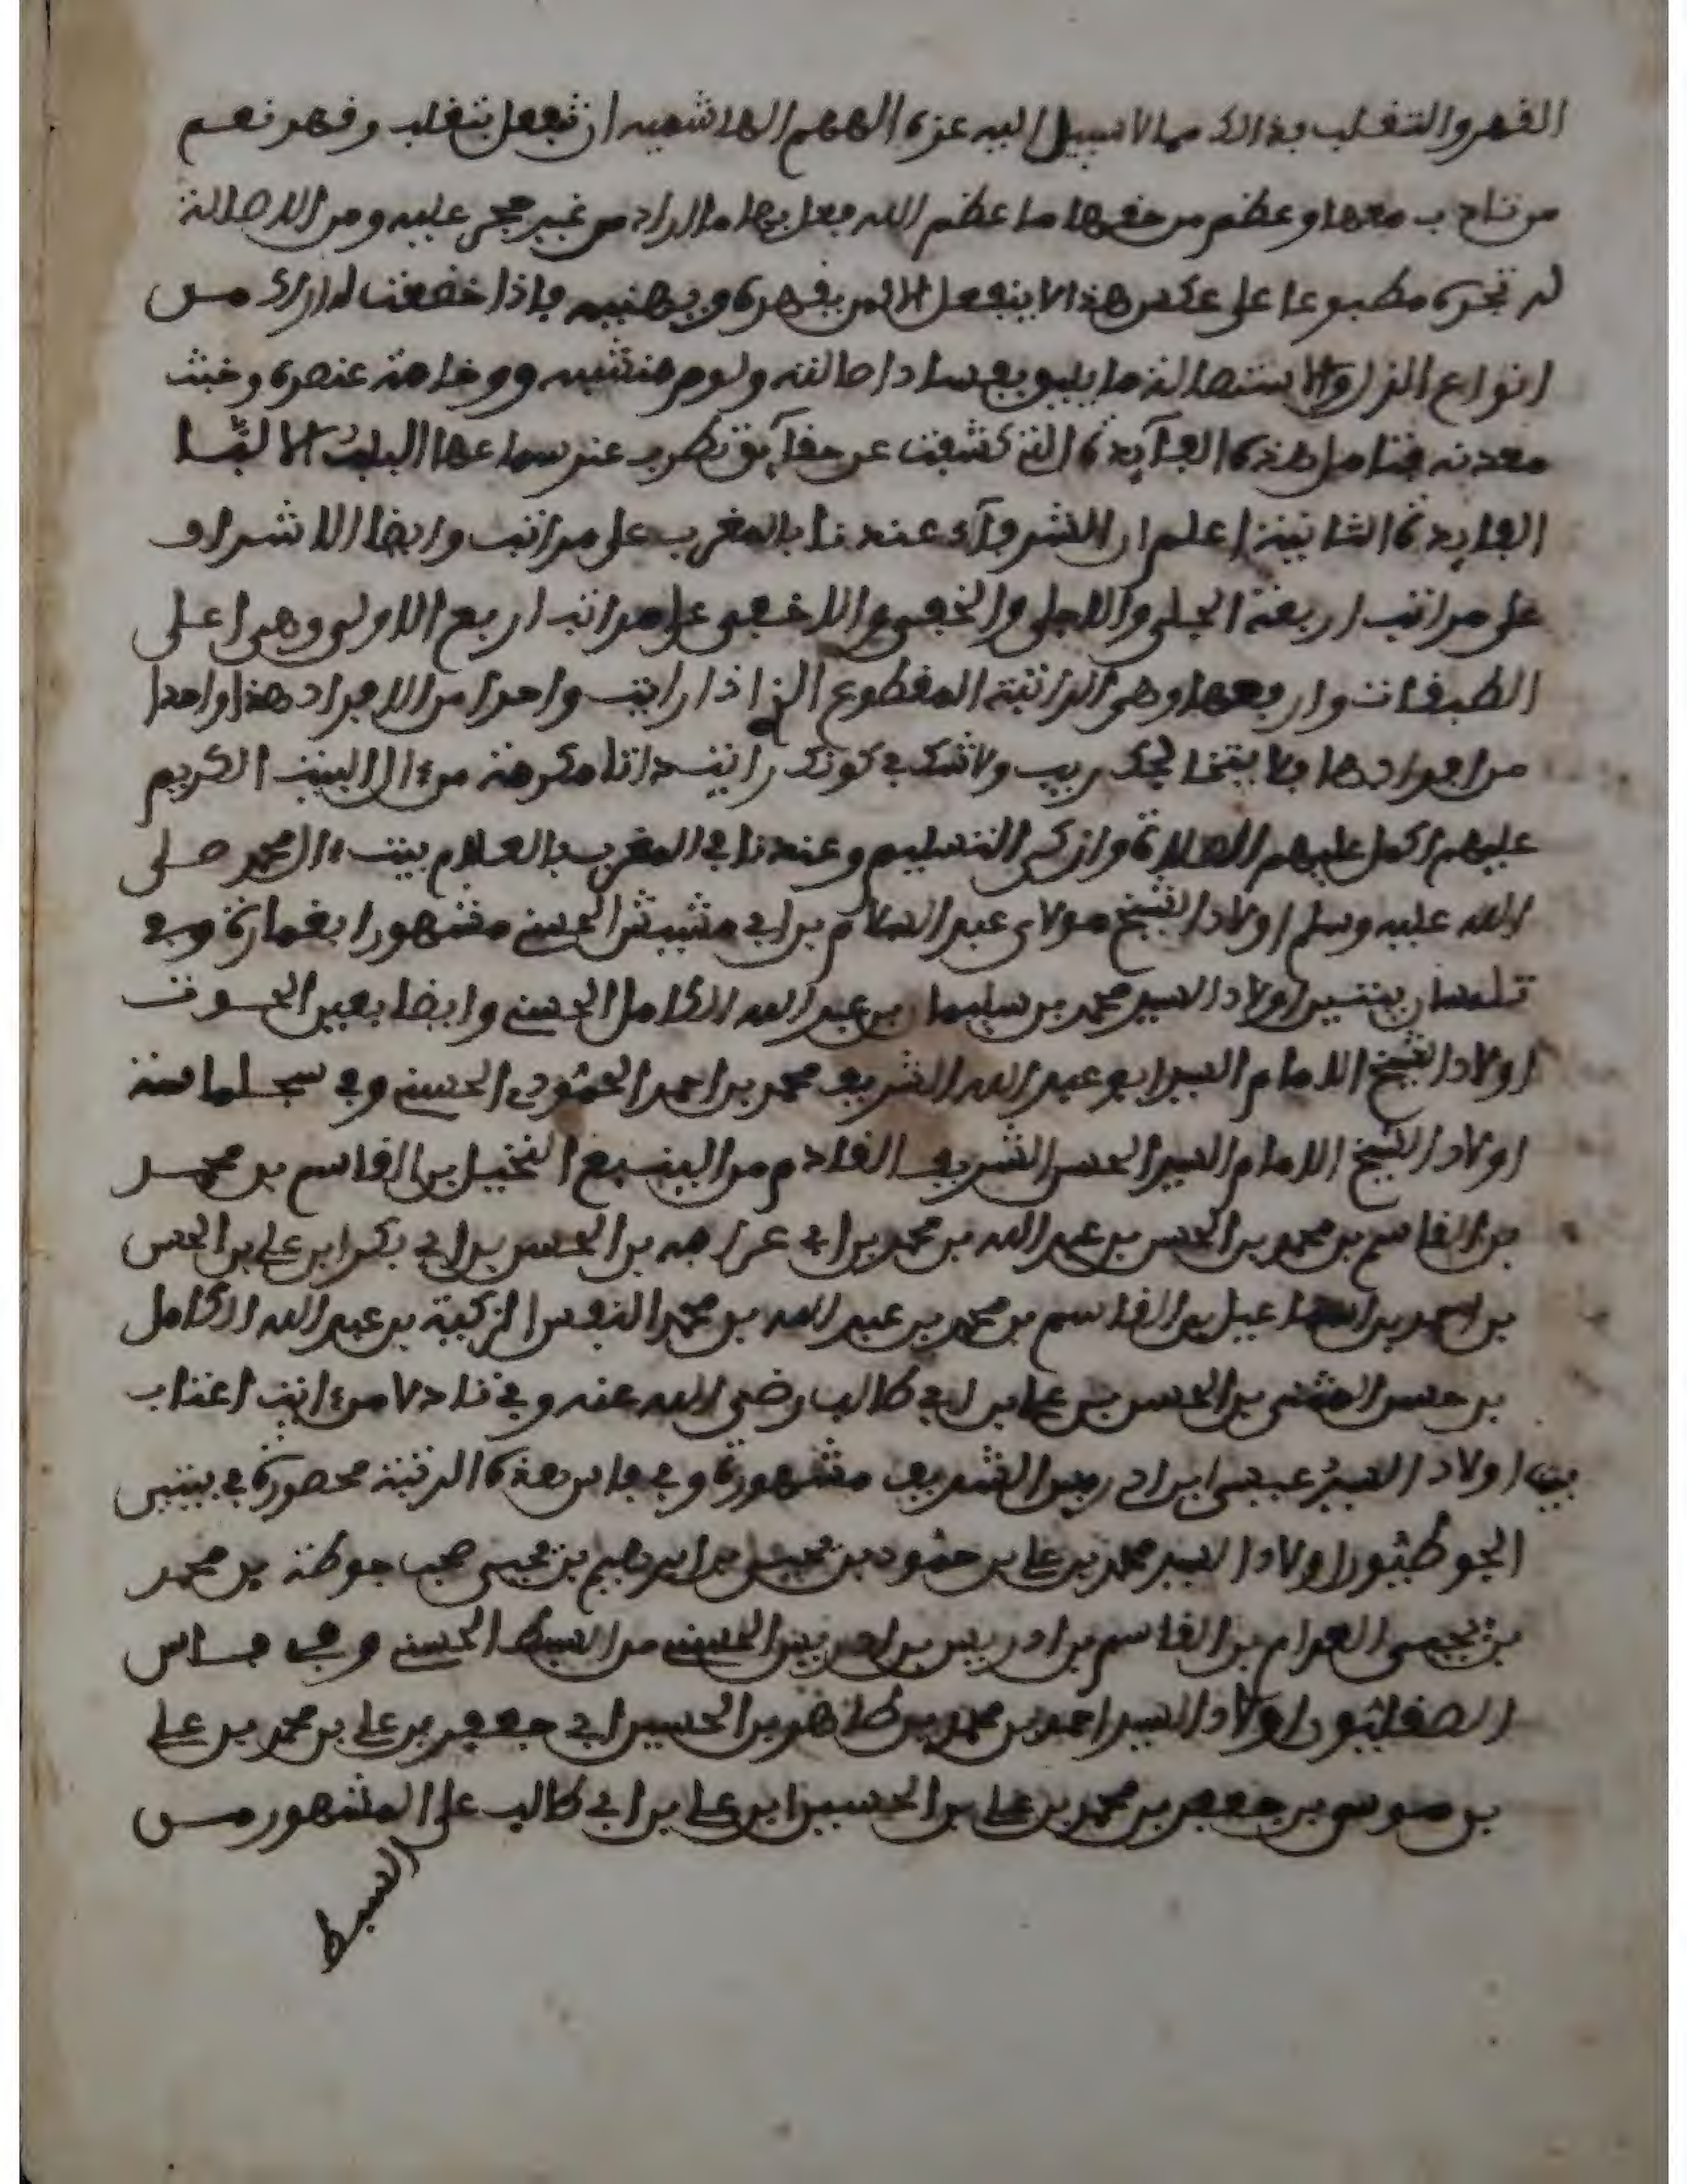 القهر والتغلب فذالك مما لا سبيل اليه عزة الهمم الهاشميه ان تفعل بتغلب وقهر نعم
من تادب معها وعظم من حقها ما عظم الله فعل بها ما اراد من غير حجر عليه ومن الاصالة
على عكس هذا لا ينفعل الا لمن يقهره ويهنيه فاذا خضعت له اراك من
انواع الذل والاستصالة ما يليق بفساد اصالته ولوم منشيه ووخامة عنصره وخبث
معدنه فتامل هذه الفآيدة التي كشفت عن حقآيق تطرب عند سماعها الالبا
الفايدة الثانية اعلم ان الشرفآء عندنا بالمغرب على مراتب وايضا الاشراف
على مراتب اربعة الجلي والاجلي والخفي والاخفى على مراتب اربع الاولى وهي اعلى
الطبقات وارفعها وهي الراتبة المقطوع الذ اذا رايت واحدا من الافراد هذا واحدا
من افرادها فلا يتخالجك ريب ولا شك في كونك رايت ذاتا مكرمة من ءال البيت الكريم
عليهم اكمل عليهم الصلاة وازكى التسليم وعندنا في المغرب بالعلام بيت ءال محمد صلى
الله عليه وسلم اولاد الشيخ مولاى عبد السلام بن ابي مشيش الحسني مشهورا بغمارة وفي
تلمسان بيتين اولاد السيد محمد بن سليمان بن عبد الله الكامل الحسني وايضا بعين الحوت
اولاد الشيخ الامام السيد ابو عبد الله الشريف محمد بن احمد الحمودي الحسني وفي سجلماسة
اولاد الشيخ الامام السيد الحسن الشريف القادم من الينبع النخيل بن القاسم بن محمد
بن القاسم بن محمد بن الحسن بن عبد الله بن محمد بن ابي عرفه بن الحسن بن ابي بكر ابن علي بن الحسن
بن احمد بن اسماعيل بن القاسم بن محمد بن عبد الله بن محمد النفس الزكية بن عبد الله الكامل
بن حسن المثنى بن الحسن بن علي بن ابي طالب رضي الله عنه وفي تادلا من ءايت اعتاب
بيت اولاد السيد عيسى ابن ادريس الشريف مشهورة وفي فاس هذه الرتبة محصورة في بيتين
الجوطيون اولاد السيد محمد بن علي بن حمود بن يحيى بن ابراهيم بن يحيى صحب جوطة بن محمد
بن يحيى العدام بن القاسم بن ادريس بن ادريس الحسني من السبط الحسني وفي فاس
الصقليون اولاد السيد احمد بن محمد بن طاهر بن الحسين ابي جعفر بن علي بن محمد بن علي
بن موسى بن جعفر بن محمد بن علي بن الحسين ابن علي بن ابي طالب على المشهور من
السبط